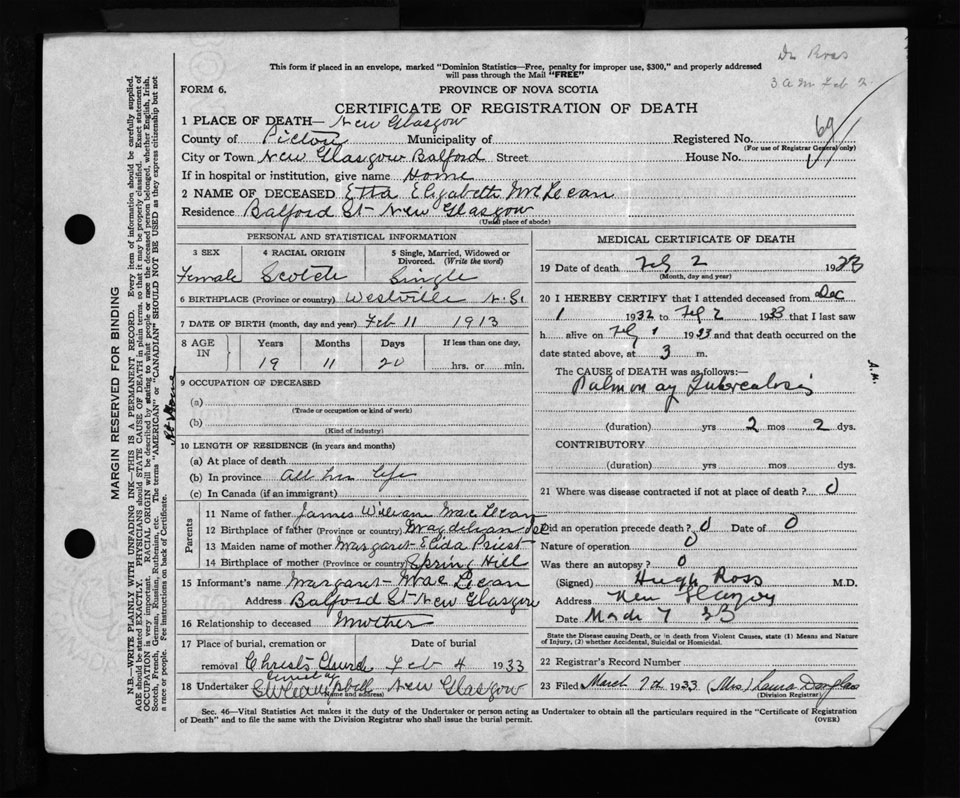 Dr Ross
3 a m Feb 2
This form if placed in an envelope, marked "Dominion Statistics—Free, penalty for improper use, $300," and properly addressed
will pass through the Mail "FREE"
FORM 6.
PROVINCE OF NOVA SCOTIA
CERTIFICATE OF REGISTRATION OF DEATH
1 PLACE OF DEATH— New Glasgow
County of Pictou Municipality of Registered No. 69
(For use of Registrar General only)
City or Town New Glasgow Balford Street House No.
If in hospital or institution, give name Home
2 NAME OF DECEASED Etta Elizabeth McLean
Residence Balford St New Glasgow
(Usual place of abode)
PERSONAL AND STATISTICAL INFORMATION
3 SEX 4 RACIAL ORIGIN 5 Single, Married, Widowed or
Divorced. (Write the word)
Female Scotch Single
6 BIRTHPLACE (Province or country) Westville N.S.
7 DATE OF BIRTH (month, day and year) Feb 11 1913
8 AGE IN Years Months Days If less than one day,
19 11 20 hrs. or min.
9 OCCUPATION OF DECEASED
(a)
(Trade or occupation or kind of work)
(b)
(Kind of industry)
At Home
10 LENGTH OF RESIDENCE (in years and months)
(a) At place of death
(b) In province All her life
(c) In Canada (if an immigrant)
Parents
11 Name of father James William MacLean
12 Birthplace of father (Province or country)
13 Maiden name of mother Margaret Elida Priest
14 Birthplace of mother (Province or country) Spring Hill
15 Informant's name Margaret MacLean
Address Balford St New Glasgow
16 Relationship to deceased Mother
17 Place of burial, cremation or Date of burial
removal Christ Church Feb 4 1933
Cemetery
18 Undertaker New Glasgow
(Name and address)
MEDICAL CERTIFICATE OF DEATH
19 Date of death Feb 2 1933
(Month, day and year)
20 I HEREBY CERTIFY that I attended deceased from Dec
1 1932 to Feb 2 1933 that I last saw
h alive on Feb 1 1933 and that death occurred on the
date stated above, at 3 m.
A.M.
The CAUSE of DEATH was as follows:
Pulmonary Tuberculosis
(duration) yrs 2 mos 2 dys.
CONTRIBUTORY
(duration) yrs mos dys.
21 Where was disease contracted if not at place of death? 0
Did an operation precede death? 0 Date of 0
Nature of operation 0
Was there an autopsy? 0
(Signed) Hugh Ross M.D.
Address New Glasgow
Date March 7 33
State the Disease causing Death, or in death from Violent Causes, state (1) Means and Nature
of Injury, (2) whether Accidental, Suicidal or Homicidal.
22 Registrar's Record Number
23 Filed March 7th 1933 (Mrs) Laura Douglas
(Division Registrar)
Sec. 46—Vital Statistics Act makes it the duty of the Undertaker or person acting as Undertaker to obtain all the particulars required in the "Certificate of Registration
of Death" and to file the same with the Division Registrar who shall issue the burial permit.
(OVER)
MARGIN RESERVED FOR BINDING
N.B.—WRITE PLAINLY WITH UNFADING INK—THIS IS A PERMANENT RECORD. Every item of information should be carefully supplied.
AGE should be stated EXACTLY. PHYSICIANS should STATE CAUSE OF DEATH in plain terms, so that it may be properly classified. Exact statement of
OCCUPATION is very important. RACIAL ORIGIN will be described by stating to what people or race the deceased person belonged, whether English, Irish,
Scotch, French, German, Russian, Ruthenian, etc. The terms "AMERICAN" or "CANADIAN" SHOULD NOT BE USED as they express citizenship but not
a race or people. Fee instructions on back of Certificate.